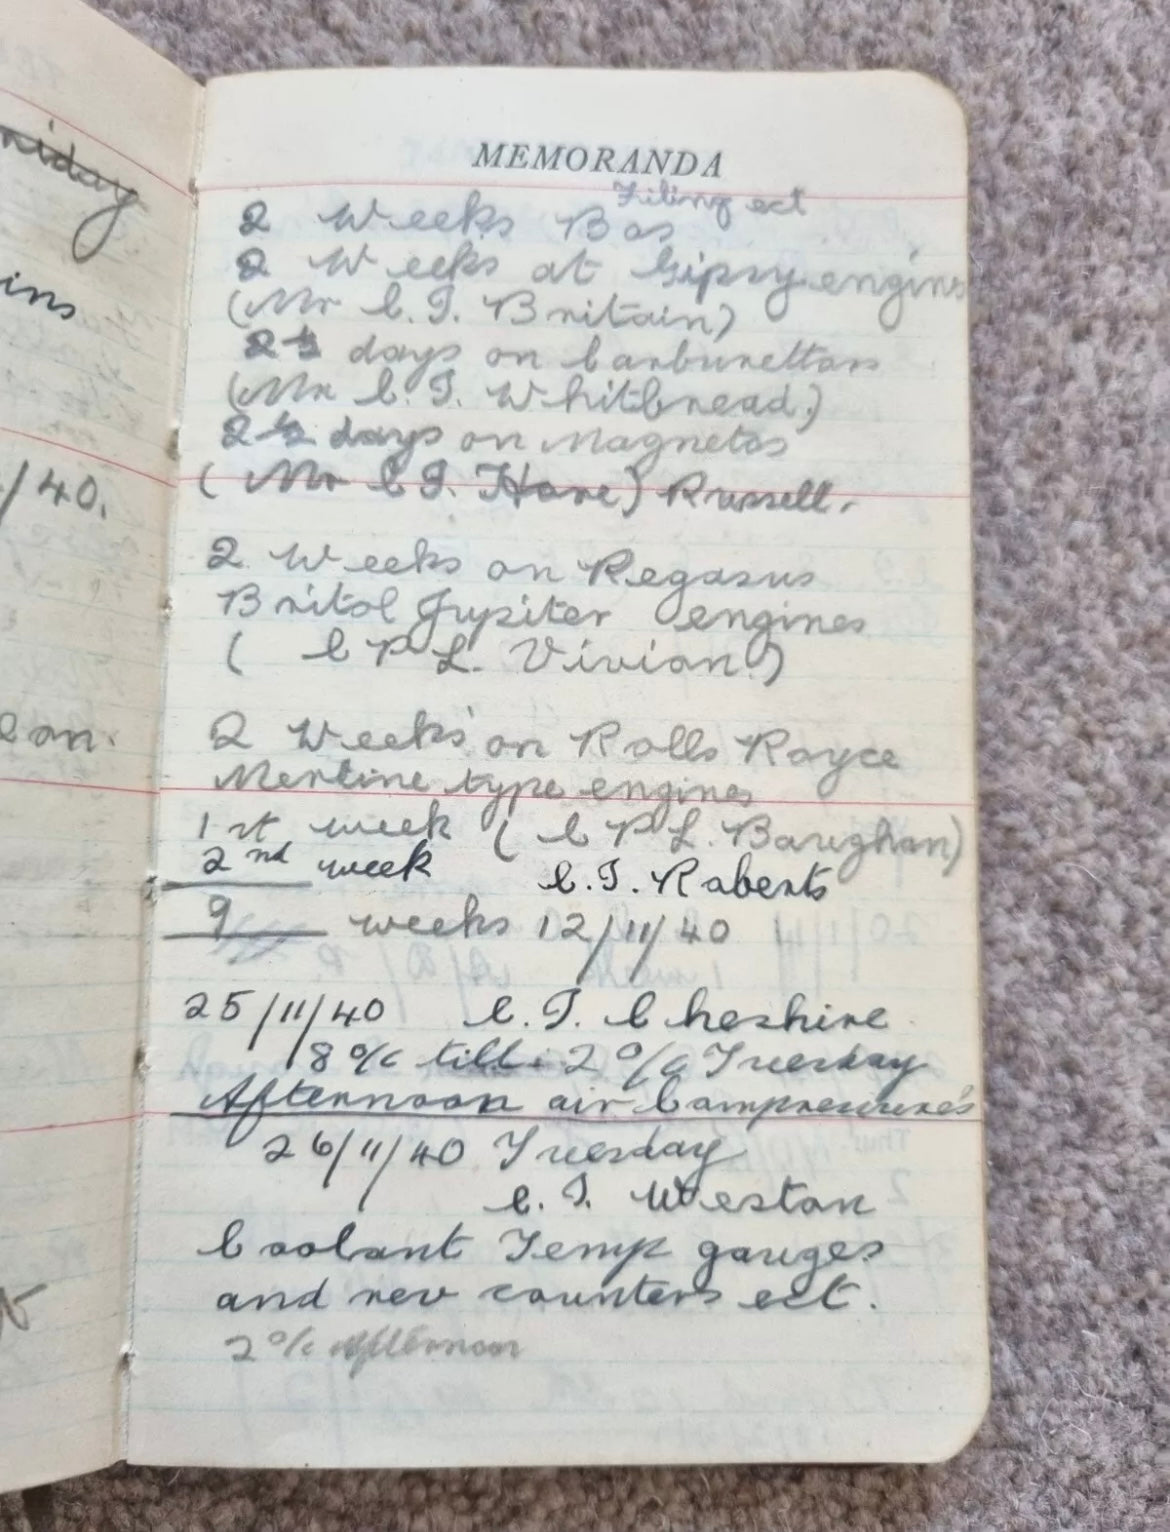 riday
ins
/40.
on.
MEMORANDA
Filing ect
2 Weeks Bas
2 Weeks at Gipsy engins
(Mr C.I. Britain)
2½ days on Carburettors
(Mr C.I. Whitbread.)
2½ days on Magnetos
(Mr C I. Hare) Russell.
2 Weeks on Pegasus
Britol Jupiter engines
( C P L. Vivian.)
2 Weeks on Rolls Royce
Merline type engines
1st week (C P L. Baughan)
2nd week C.I. Roberts
9 weeks 12/11/40
25/11/40 C.I. Cheshire
8 o/c till 2 o/c Tuesday
Afternoon air Compressure's
26/11/40 Tuesday
C.I. Weston
Coolant Temp gauges
and rev counters ect.
2 o/c Afternoon